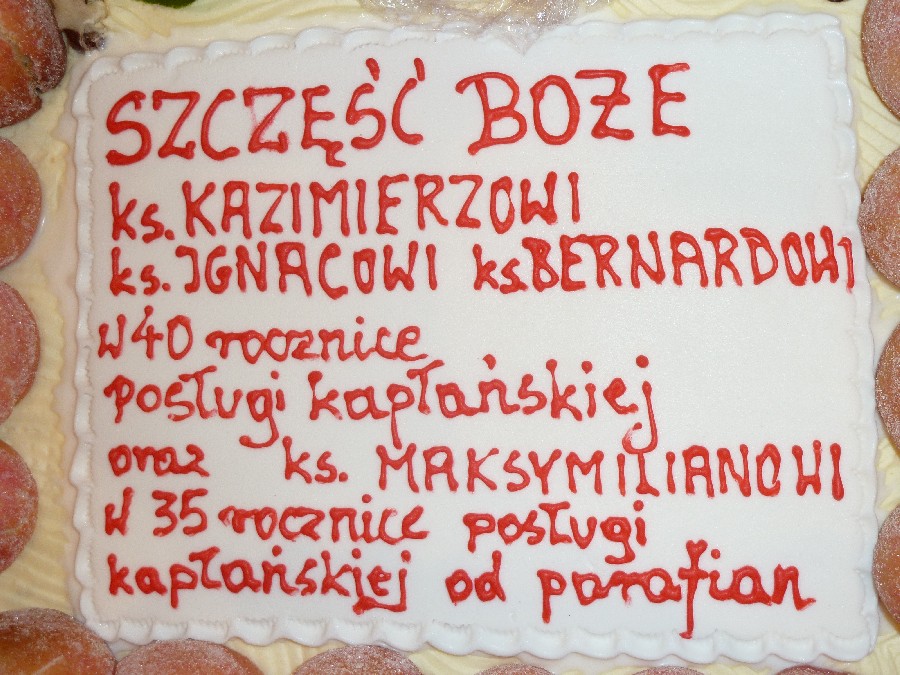 SZCZĘŚĆ BOŻE
ks. KAZIMIERZOWI
ks. IGNACOWI ks. BERNARDOWI
w 40 rocznicę
posługi kapłańskiej
oraz ks. MAKSYMILIANOWI
w 35 rocznicę posługi
kapłańskiej od parafian